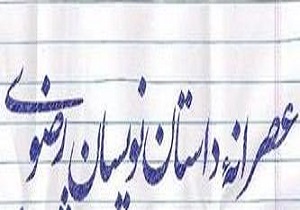 عصرانهٔ داستان نویسان رضوی